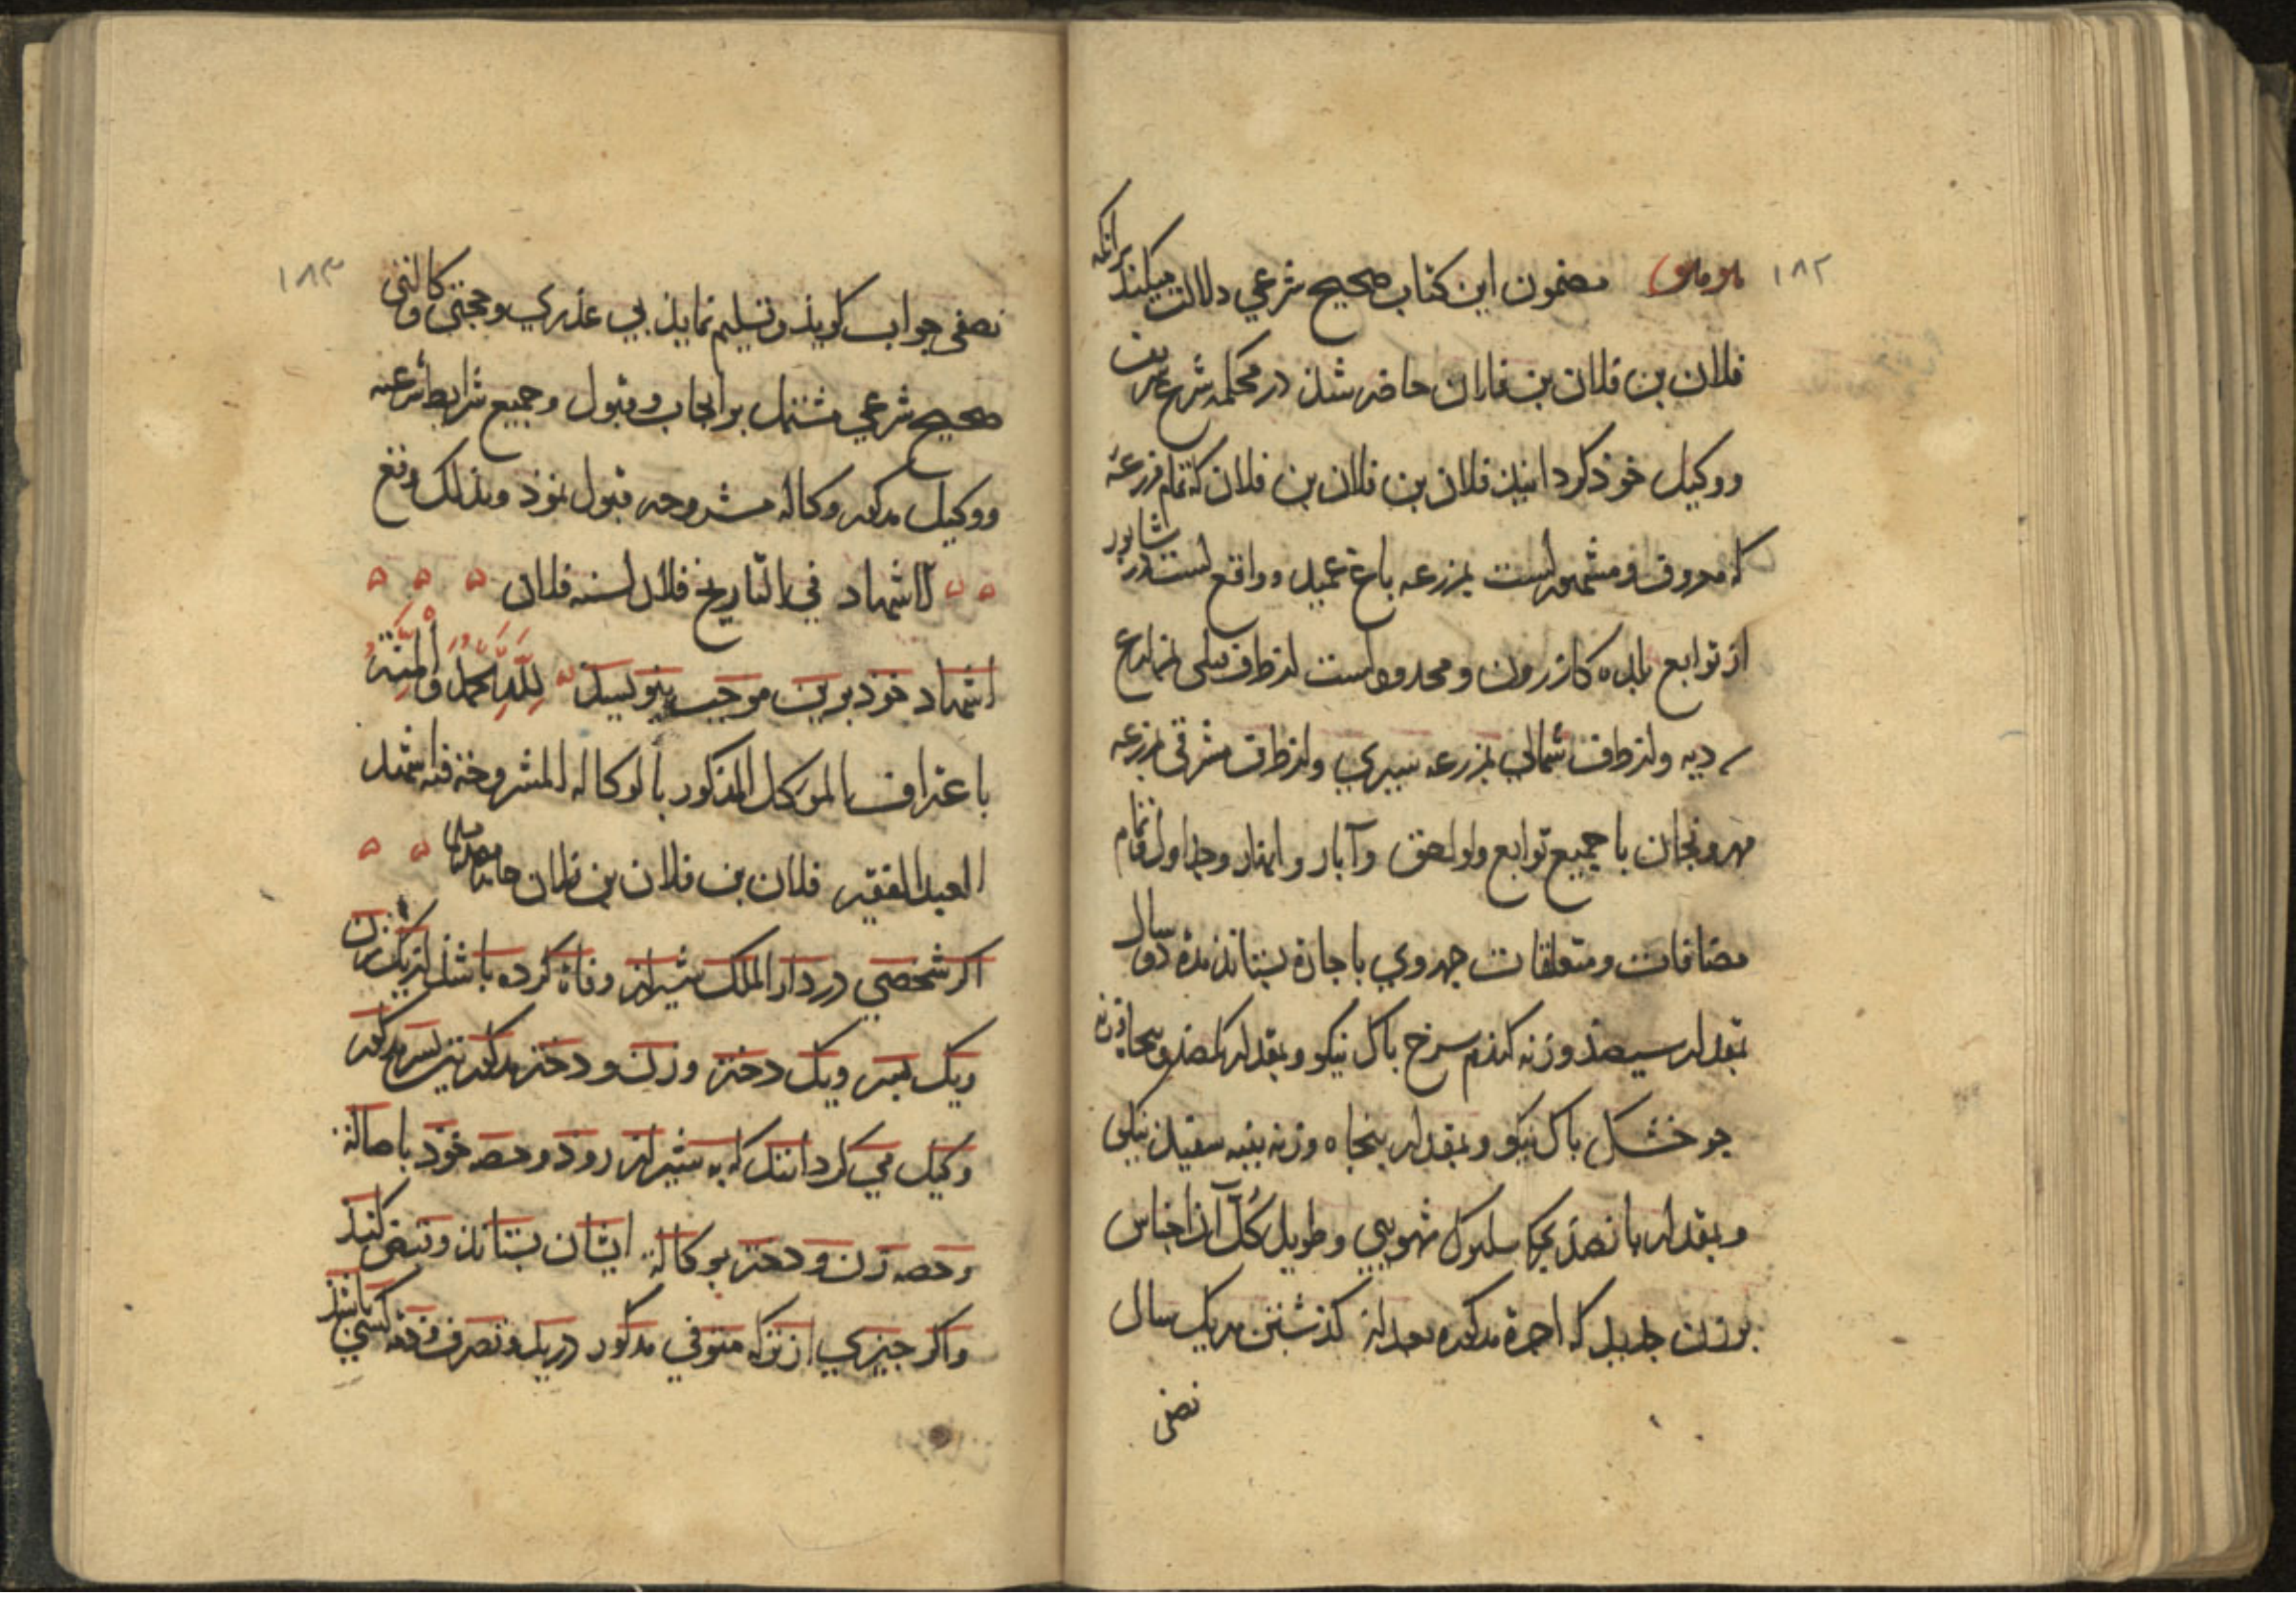 ۱۸۲
مضمون این کتاب صحیح شرعی دلالت میکند برآنکه
فلان بن فلان بن فلان حاضر شذ در محکمه شرع
و وکیل خوذ کردانید فلان بن فلان بن فلان که تمام مزرعهٔ
که معروف و مشهور است بمزرعه باغ عمید و واقع است در شابور
از توابع بلده کازرون و محدود است از طرف قبلی بمزارع
دیه و از طرف شمالی بمزرعه سیری و از طرف شرقی بمزرعه
مهرونجان با جمیع توابع و لواحق و آبار و انهار و جداول و تمام
مضافات و متعلقات جهر وی باجارة بستاند مدة دو سال
بمقدار سیصذ وزنه کندم سرخ باک نیکو و بمقدار یکصذ و پنجاه وزنه
جو خشک باک نیکو و بمقدار پنجاه وزنه پنبه سفید نیکی
و بمقدار بانصذ سلبوک و طویل کل آن اجناس
بوزن جدید که اجرة مذکوره بعد از کذشتن هر یک سال
نصفی
۱۸۳
نصفی جواب کویذ و تسلیم نمایذ بی عذری و حجتی وکالتی
صحیح شرعی مشتمل بر ایجاب و قبول و جمیع شرایط شرعیه
و وکیل مذکور وکالهٔ مشروحه قبول نموذ و بذلک وقع
الاشهاد فی التاریخ فلان لسنه فلان
اشهاد خوذ برین موجب بنویسد لله الحمد والمنة
باعتراف الموکل المذکور بالوکاله المشروحة فیه اشهد
العبد الفقیر فلان بن فلان بن فلان حامدا مصلیا
اکر شخصی در دار الملک شیراز وفاة کرده باشذ از یک زن
و یک بسر و یک دختر و زن و دختر مذکور نیز بسر مذکور
وکیل می کردانند که به شیراز روذ و حصه خوذ باصالة
و حصه زن و دختر بوکالة ایشان بستاند و قبض کنذ
و اکر جیزی از ترکه متوفی مذکور در ید و تصرف و ذمه کسی باشذ